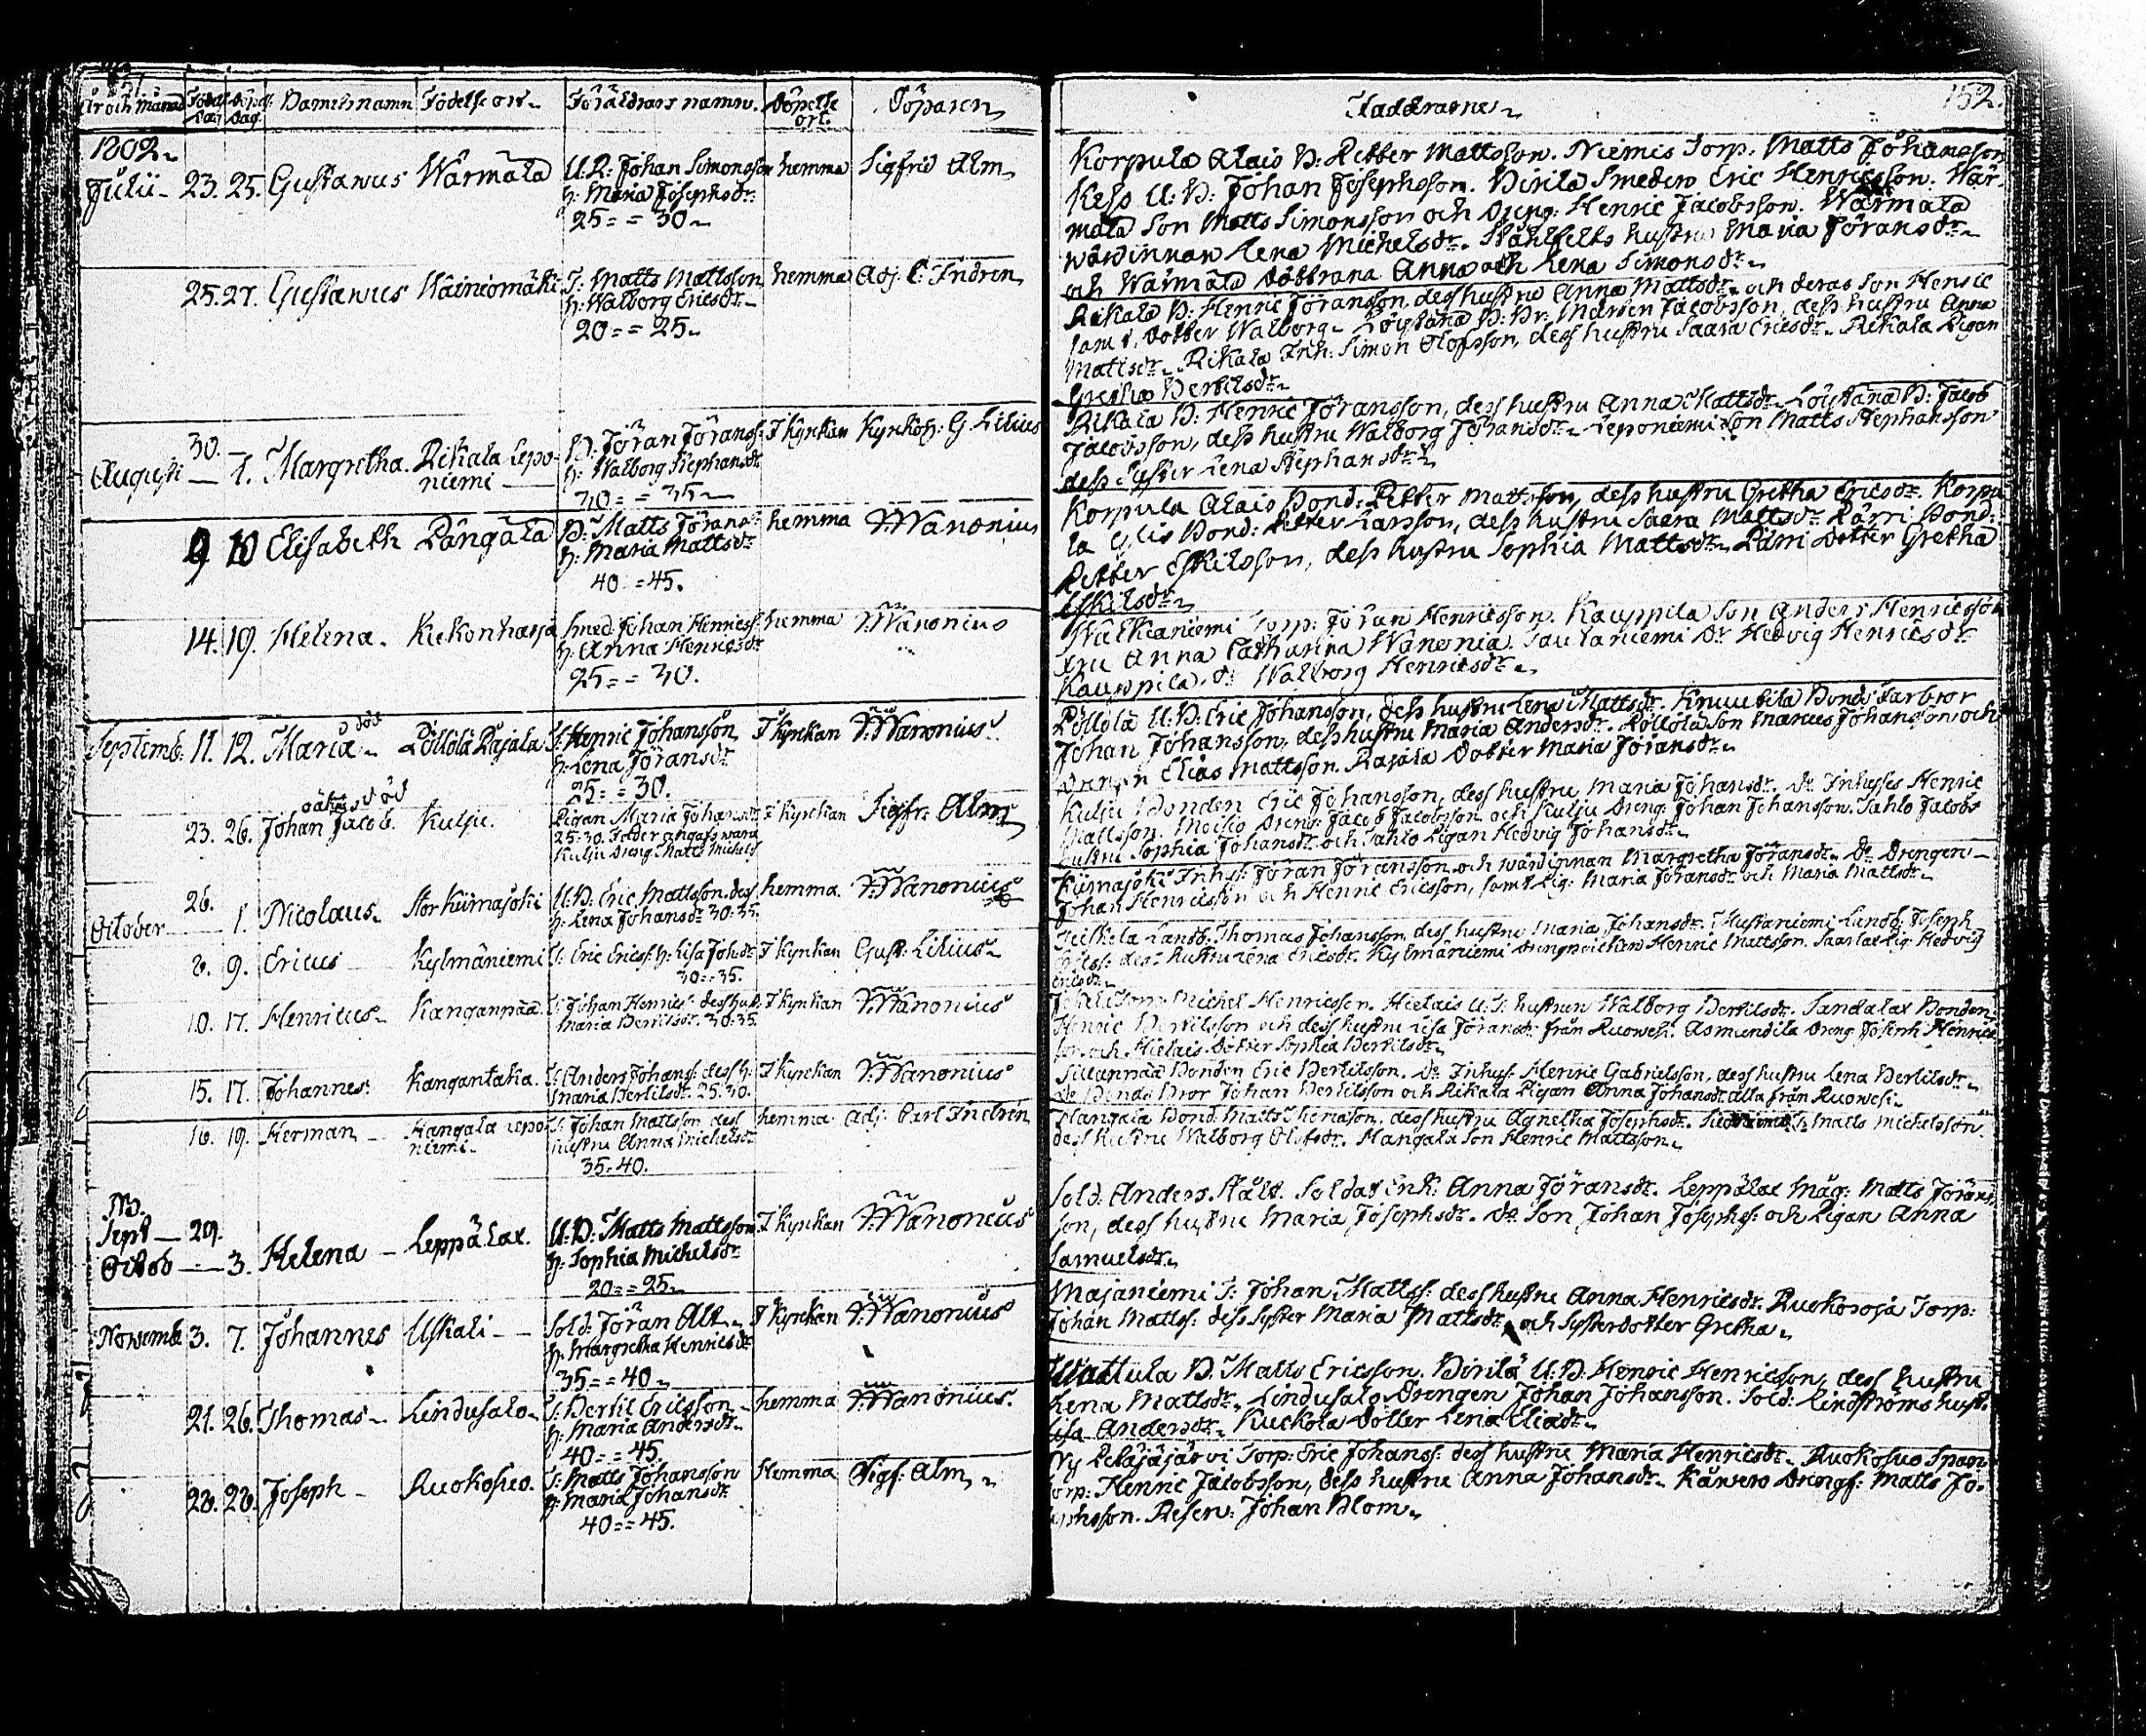 151
År och månad Födel. dag Döpel. dag Barnets namn Födelse ort Föräldrars namn. Döpelse ort. Döparen
1802.
Julii 23. 25. Gustavus Wärmälä U.B. Johan Simonsson hemma Sigfrid Alm
h: Maria Josephsdr
25 = = 30
25. 27. Gustavus Wäiniömäki T: Matts Mattsson hemma Adj. C. Indren
h: Walborg Ericsdr
20 = = 25
30.
Augusti 1. Margretha Rikala Lepo- B: Jöran Jöranss: I kyrkan Kyrkoh: G. Lilius
niemi h: Walborg Stephansdr
30 = = 35
9 10 Elisabeth Pångälä B: Matts Jöranss: hemma V:Wanonius
h: Maria Mattsdr
40 = 45.
14. 19. Helena Kukonharja Smed. Johan Henricss: hemma V:Wanonius
h: Anna Henricsdr
25 = = 30.
död
Septemb: 11. 12. Maria Pöllölä Rajala T: Henric Johansson I kyrkan V:Wanonius
h: Lena Jöransdr
25 = = 30.
oäkta död
23. 26. Johan Jacob. Kulju. Pigan Maria Johansdr I kyrkan Sigfr: Alm
25-30. Fader angafs wara
Kulju Dreng: Matts Michelss
26.
October 1. Nicolaus Stor Kiimajoki U.B. Eric Mattsson dess hemma. V:Wanonius
h: Lena Johansdr 30:35.
8. 9. Ericus Kylmäniemi T: Eric Ericss: h: Lisa Johsdr I kyrkan Gust: Lilius
30 = 35.
10. 17. Henricus Kanganpää T: Johan Henricss: dess hust: I kyrkan V:Wanonius
Maria Bertilsdr. 30:35.
15. 17. Johannes: Kangantaka. T: Anders Johanss: dess h: I kyrkan V:Wanonius
Maria Bertilsdr. 25:30.
16. 19. Herman Hangala Lepo- T: Johan Mattsson dess hemma Adj: Carl Indrén
niemi hustru Anna Michelsdr
35-40.
NB.
Sept 29.
Octob 3. Helena Leppälax. U.B: Matts Mattsson I kyrkan V:Wanonius
h: Sophia Michelsdr
20 = = 25
Novemb: 3. 7. Johannes Uskali Sold: Jöran Alt I kyrkan V:Wanonius
h: Margretha Henricsdr
35 = = 40
21. 26. Thomas Lindusalo T: Bertil Ericsson hemma V:Wanonius.
h: Maria Andersdr
40 = = 45.
28. 28. Joseph Ruokosuo. T: Matts Johansson Hemma Sigf: Alm
h: Maria Johansdr
40 = = 45.
Faddrarne 152.
Korpula Alais B: Petter Mattsson. Niemis Torp. Matts Johansson
Kess U: B: Johan Josephsson. Birila Smeden Eric Henricsson. Wär-
mälä Son Matts Simonsson och Dreng: Henric Jacobsson. Wärmälä
wärdinnan Lena Michelsdr. Ståhlfelts hustru Maria Jöransdr
och Wärmälä döttrarna Anna och Lena Simonsdr
Rikala B: Henric Jöransson dess hustru Anna Mattsdr och deras Son Henric
samt dotter Walborg Löytänä B: Br: Mårten Jacobsson, dess hustru Anna
Mattsdr. Rikala Inh: Simon Olofsson, dess hustru Saara Ericsdr. Rikala Pigan
Gretha Bertilsdr
Rikala B: Henric Jöransson, dess hustru Anna Mattsdr Löytänä B: Jacob
Jacobsson, dess hustru Walborg Jöransdr Leponiemi Son Matts Stephansson
dess Syster Lena Stephansdr
Korpula Alais Bond: Petter Mattsson, dess hustru Gretha Ericsdr. Korpu
la Bond: Petter Larsson, dess hustru Saara Mattsdr Pärri Bond:
Petter Eskilsson, dess hustru Sophia Mattsdr Pärri dotter Gretha
Eskilsdr
Walkianiemi Torp: Jöran Henricsson. Kauppila Son Anders Henricsson
Anna Catharina Wanonia. Saulaniemi Dr Hedvig Henricsdr
Kauppila Walborg Henricsdr
Pöllölä U.B: Eric Johansson, dess hustru Lena Mattsdr. Knuutila Bond: Farbror
Johan Johansson, dess hustru Maria Andersdr. Pöllölä Son Marcus Johansson och
Elias Mattsson. Rajala Dotter Maria Jöransdr
Kulju Bonden Eric Johansson, dess hustru Maria Johansdr. Inhyses Henric
Mattsson. Moisio Dreng: Jacob Jacobsson och Kulju Dreng: Johan Johansson. Tahlo Jacobs
hustru Sophia Johansdr och Tahlo Pigan Hedvig Johansdr
Kiimajoki Inhys: Jöran Jöransson och wärdinnan Margretha Jöransdr. Do Drengen
Johan Henricsson och Henric Ericsson, samt Pig: Maria Jöransdr och Maria Mattsdr
Landb: Thomas Johansson dess hustru Maria Johansdr. Mustaniemi Landb: Joseph
dess hustru Lena Ericsdr. Kylmäniemi Henric Mattsson. Pig: Hedvig
Ericsdr
Michel Henricsson. Hietais U.B: hustrun Walborg Bertilsdr. Sandalax Bonden
Henric Bertilsson och dess hustru Lisa Jöransdr från Ruowesi. Asmundila Dreng Joseph Henrics
son och Hietais dotter Sophia Bertilsdr
Bonden Eric Bertilsson. Do Inhys: Henric Gabrielsson, dess hustru Lena Bertilsdr
do Bonde Bror Johan Bertilsson och Rikala Pigan Anna Johansdr alla från Ruowesi
Hangala Bond: Matts Thomasson, dess hustru Agnetha Josephsdr. Matts Michelsson
dess hustru Walborg Olofsdr. Hangala Son Henric Mattsson
Sold: Anders Stålt. Soldat Enk: Anna Jöransdr. Leppälax Måg: Matts Jörans
son, dess hustru Maria Josephsdr. do Son Johan Josephss: och Pigan Anna
Samuelsdr
Majaniemi T: Johan Mattss: dess hustru Anna Henricsdr. Ruokooja Torp:
Johan Mattss: dess Syster Maria Mattsdr och Systerdotter Gretha
Mattula B. Matts Ericsson. Birilä U.B. Henric Henricsson, dess hustru
Lena Mattsdr. Lindusalo Drengen Johan Johansson. Sold: Lindströms hust:
Lisa Andersdr. Kuckola dotter Lena Eliædr
Ny Petäjäjärvi Torp: Eric Johanss: dess hustru Maria Henricsdr. Ruokosuo
Torp: Henric Jacobsson, dess hustru Anna Johansdr. Kärwero Drengf: Matts Jo-
sephsson. Reserv: Johan Blom